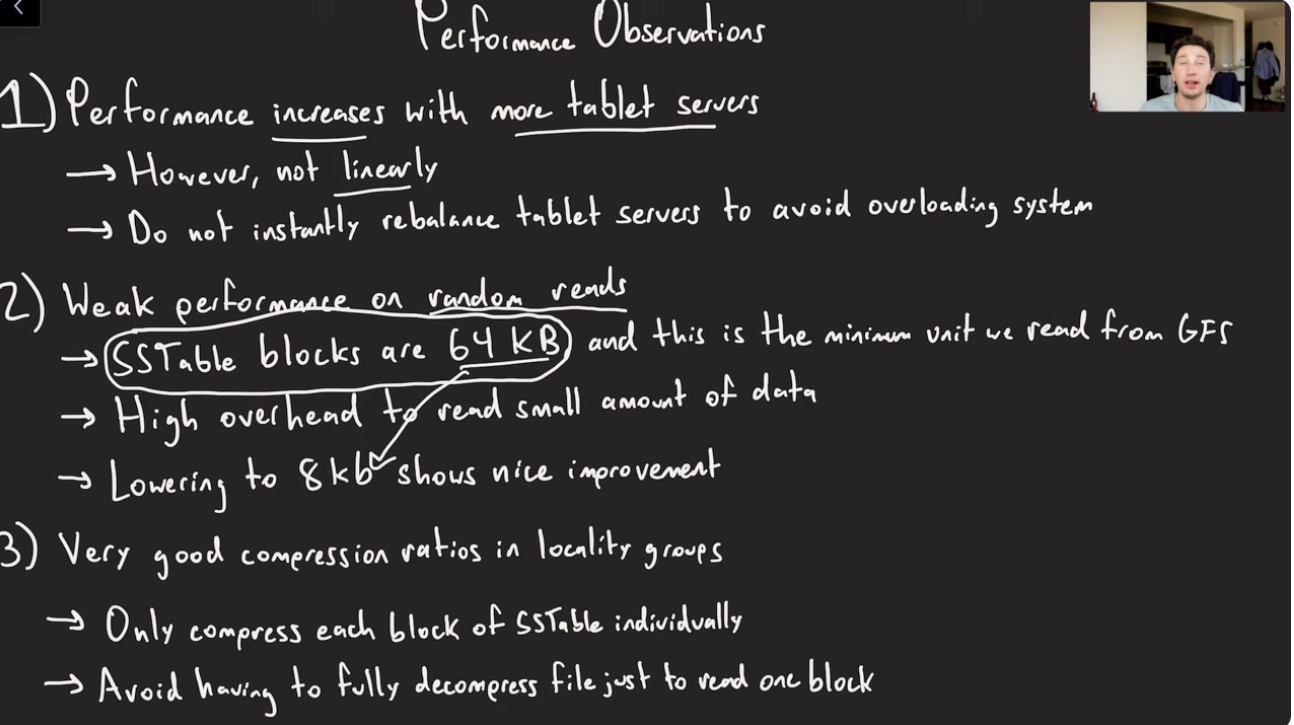 Performance Observations
1) Performance increases with more tablet servers
→ However, not linearly
→ Do not instantly rebalance tablet servers to avoid overloading system
2) Weak performance on random reads
→ SSTable blocks are 64 KB and this is the minimum unit we read from GFS
→ High overhead to read small amount of data
→ Lowering to 8kb shows nice improvement
3) Very good compression ratios in locality groups
→ Only compress each block of SSTable individually
→ Avoid having to fully decompress file just to read one block